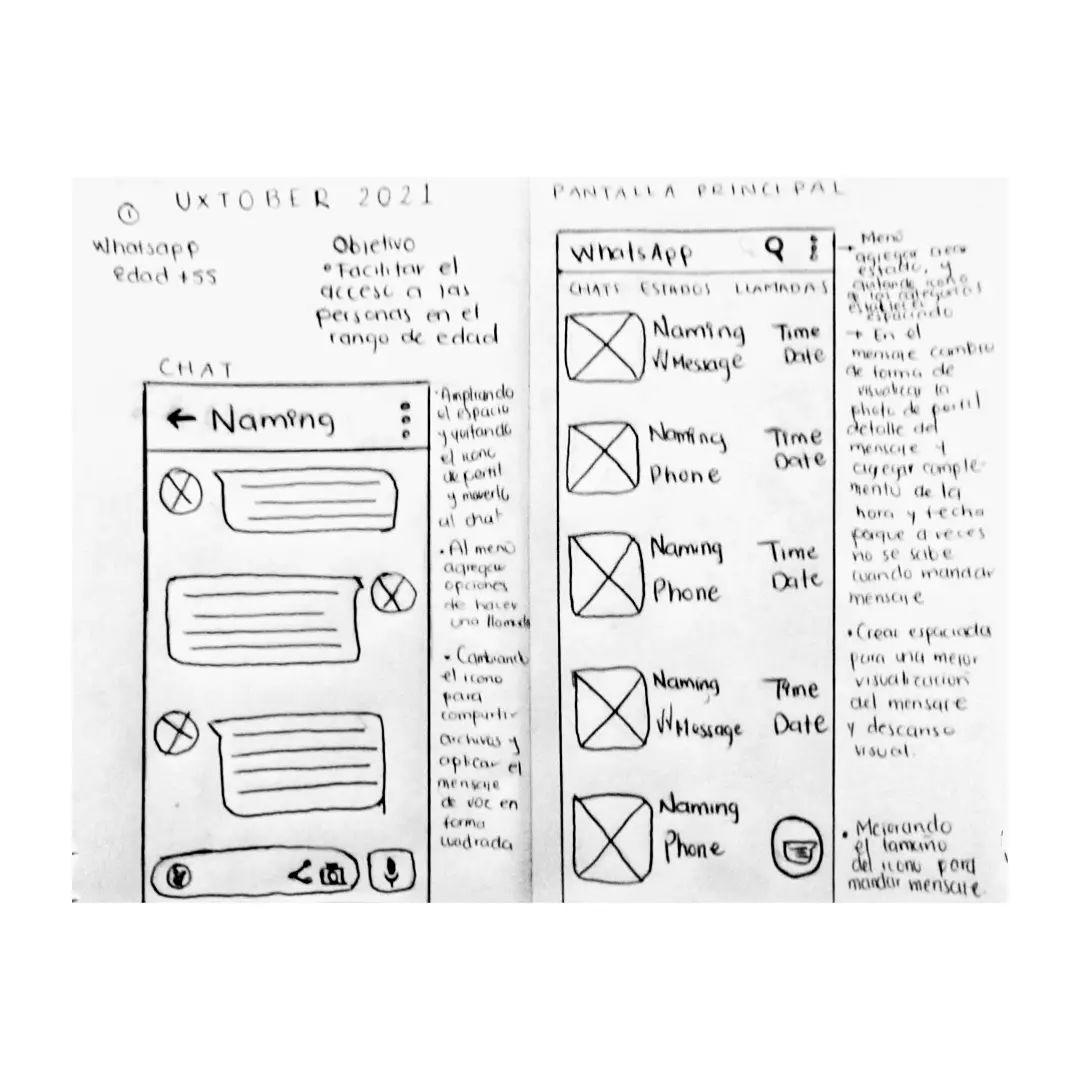 ①
UXTOBER 2021
Whatsapp
Edad +55
Objetivo
• Facilitar el
acceso a las
personas en el
rango de edad
CHAT
← Naming
• Ampliando
el espacio
y quitando
el icono
de perfil
y moverlo
al chat
• Al menú
agregar
opciones
de hacer
una llamada
• Cambiando
el icono
para
compartir
archivos y
aplicar el
mensaje
de voz en
forma
cuadrada
PANTALLA PRINCIPAL
WhatsApp
CHATS ESTADOS LLAMADAS
Naming Time
√√ Message Date
Naming Time
Phone Date
Naming Time
Phone Date
Naming Time
√√ Message Date
Naming
Phone
→ Menú
agregar
estado, y
quitando icono
a las categorías
espaciado
→ En el
mensaje cambio
de forma de
visualizar la
photo de perfil
detalle del
mensaje y
agregar comple-
mento de la
hora y fecha
porque a veces
no se sabe
cuando mandar
mensaje
• Crear espaciada
para una mejor
visualización
del mensaje
y descanso
visual.
• Mejorando
el tamaño
del icono para
mandar mensaje